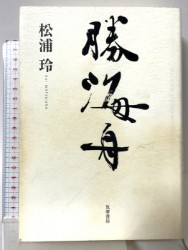 勝海舟
松浦 玲
Rei Matsuura
筑摩書房